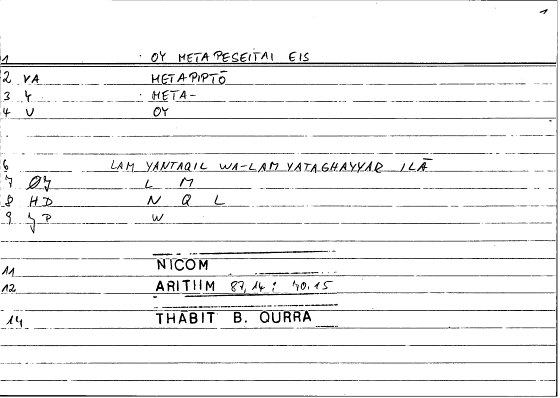 1
1 · OY METAPESEITAI EIS
2 VA METAPIPTŌ
3 · META-
4 V OY
6 LAM YANTAQIL WA-LAM YATAGHAYYAR ILĀ
7 L M
8 HD N Q L
9 W
11 NICOM
12 ARITHM 87,14 : 70.15
14 THĀBIT B. QURRA